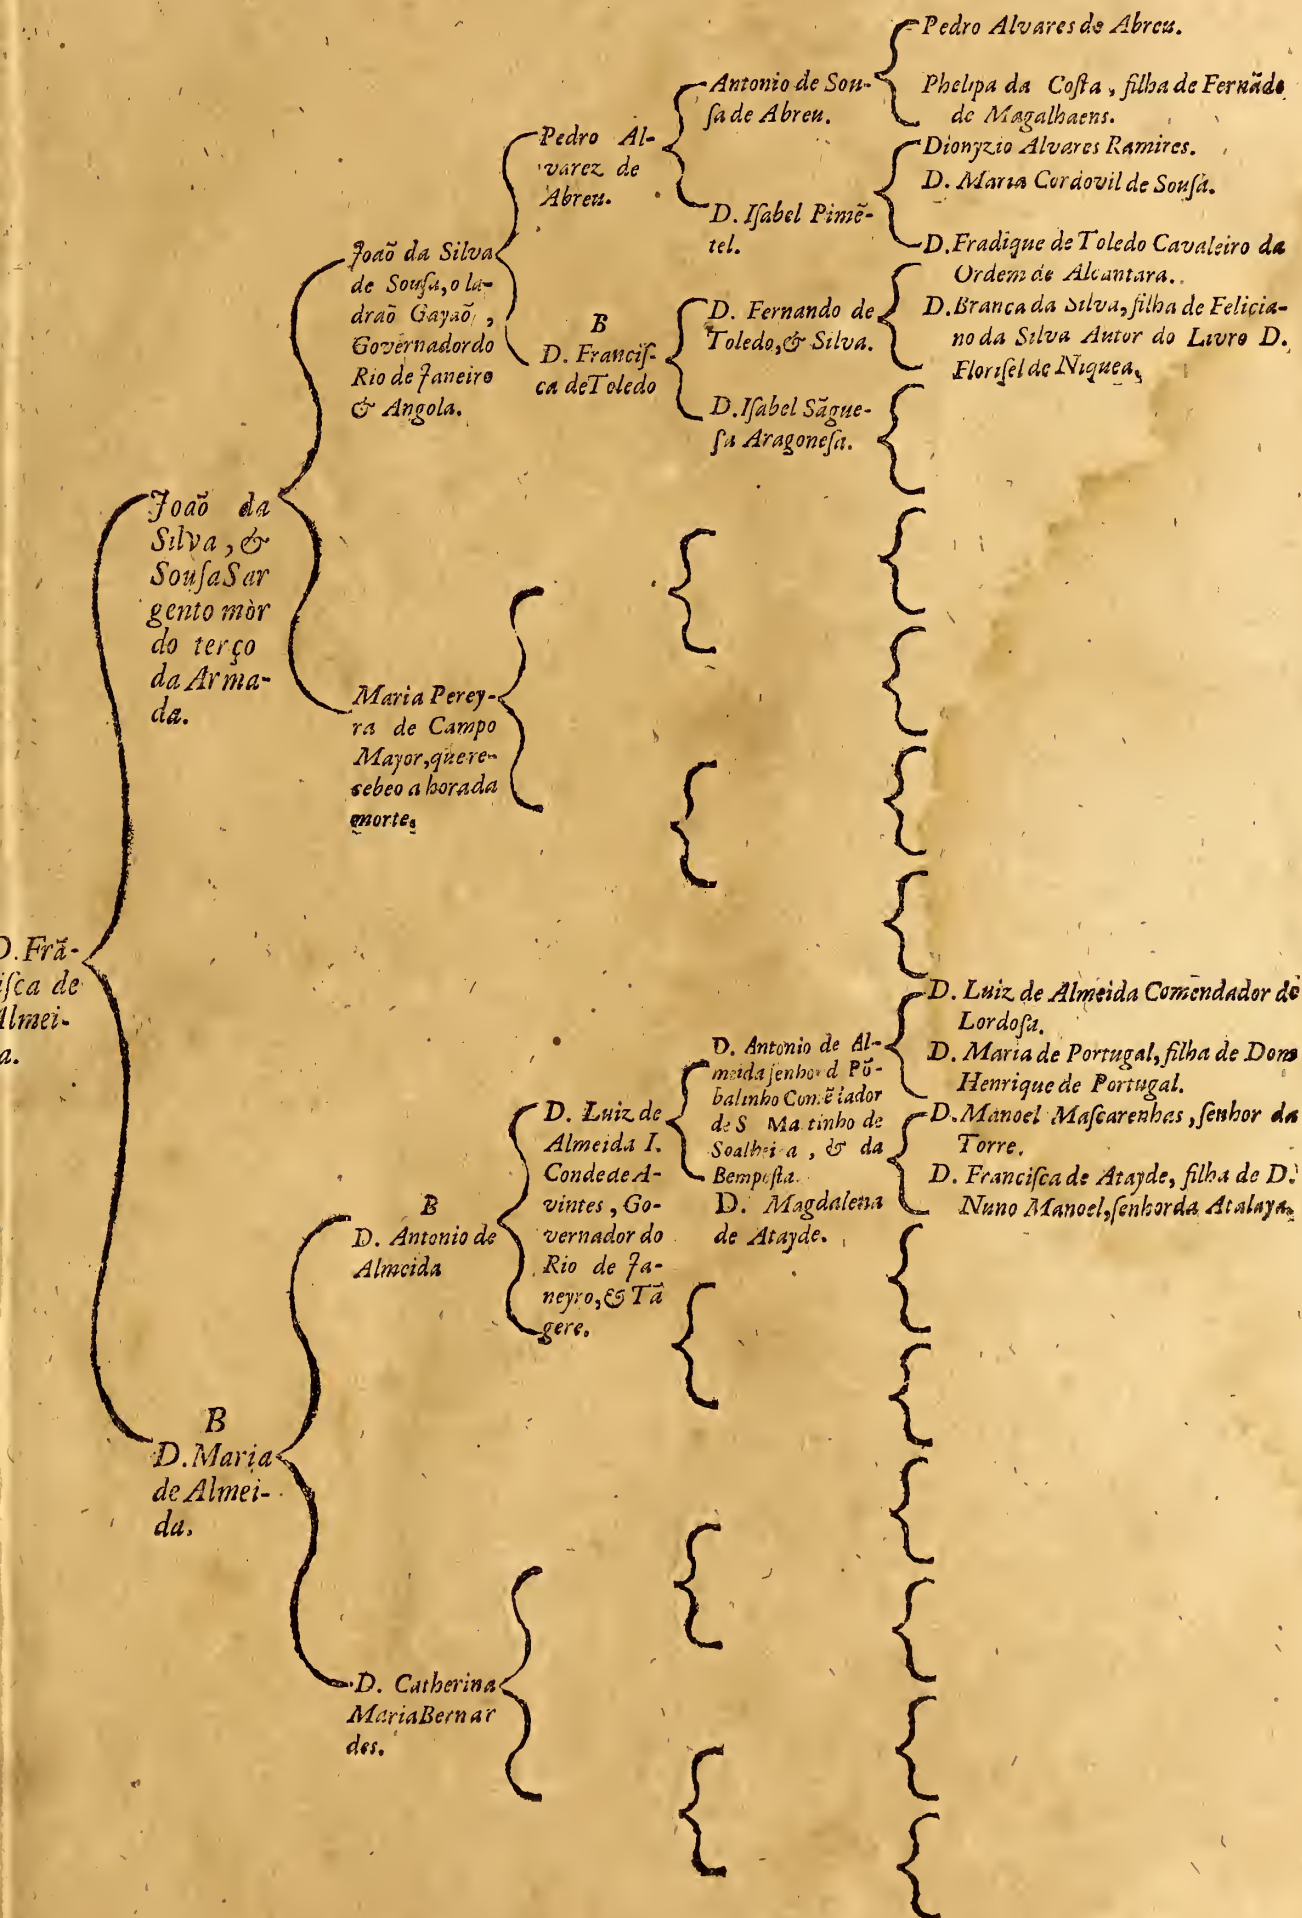 D. Frã-
iſca de
Almei-
a.
Joaõ da
Silva, &
Souſa Sar
gento mòr
do terço
da Arma-
da.
B
D. Maria
de Almei-
da.
Joaõ da Silva
de Souſa, o la-
draõ Gayaõ,
Governador do
Rio de Janeiro
& Angola.
Maria Perey-
ra de Campo
Mayor, que re-
cebeo a hora da
morte.
B
D. Antonio de
Almeida
D. Catherina
Maria Bernar
des.
Pedro Al-
varez de
Abreu.
B
D. Franciſ-
ca de Toledo
D. Luiz de
Almeida I.
Conde de A-
vintes, Go-
vernador do
Rio de Ja-
neyro, & Tã
gere.
Antonio de Sou-
ſa de Abreu.
D. Iſabel Pimẽ-
tel.
D. Fernando de
Toledo, & Silva.
D. Iſabel Sãgue-
ſa Aragoneſa.
D. Antonio de Al-
meida ſenhor d Põ-
balinho Comẽdador
de S Ma tinho de
Soalhei a, & da
Bempoſta.
D. Magdalena
de Atayde.
Pedro Alvares de Abreu.
Phelipa da Coſta, filha de Fernãdo
de Magalhaens.
Dionyzio Alvares Ramires.
D. Maria Cordovil de Souſa.
D. Fradique de Toledo Cavaleiro da
Ordem de Alcantara.
D. Branca da Silva, filha de Felicia-
no da Silva Autor do Livro D.
Floriſel de Niquea.
D. Luiz de Almeida Comẽndador de
Lordoſa.
D. Maria de Portugal, filha de Dom
Henrique de Portugal.
D. Manoel Maſcarenhas, ſenhor da
Torre.
D. Franciſca de Atayde, filha de D.
Nuno Manoel, ſenhor da Atalaya.